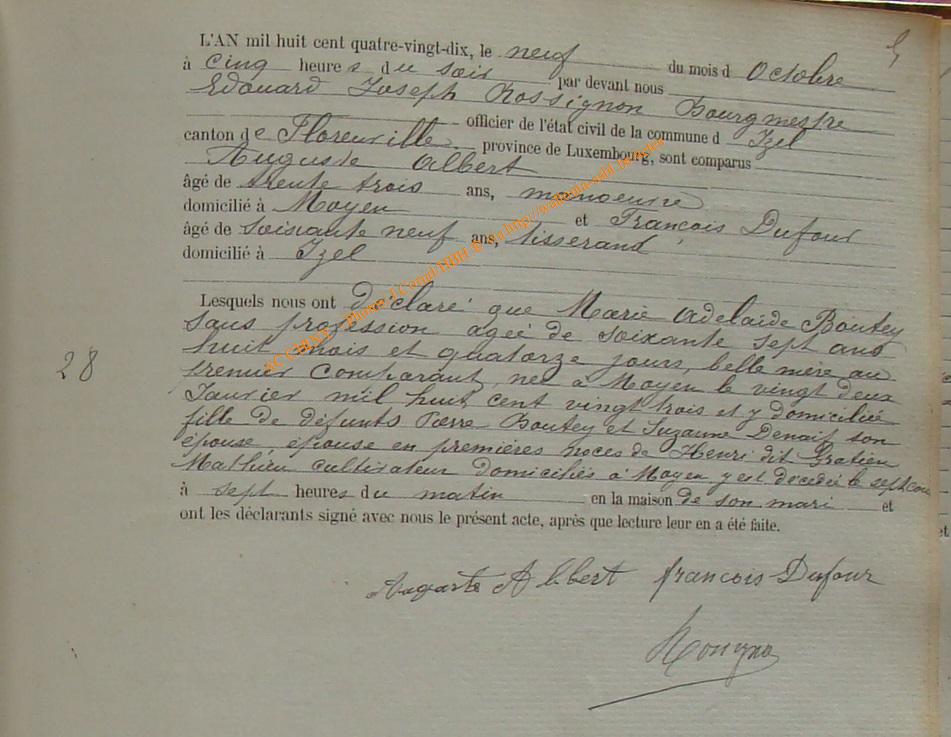 L'AN mil huit cent quatre-vingt-dix, le neuf du mois d Octobre
à cinq heures du soir par devant nous
Edouard Joseph Rossignon Bourgmestre
officier de l'état civil de la commune d Izel
canton de Florenville province de Luxembourg, sont comparus
Auguste Albert
âgé de trente trois ans, manoeuvre
domicilié à Moyen et François Dufour
âgé de soixante neuf ans, tisserand
domicilié à Izel
Lesquels nous ont déclaré que Marie Adelaïde Boutey
sans profession agée de soixante sept ans
huit mois et quatorze jours, belle mère au
28
premier comparant, née à Moyen le vingt deux
Janvier mil huit cent vingt trois et y domiciliée
fille de défunts Pierre Boutey et Suzanne son
épouse, épouse en premières noces de Henri dit Gratien
Mathieu cultivateur domiciliés à Moyen y est décédée le sept
à sept heures du matin en la maison de son mari et
ont les déclarants signé avec nous le présent acte, après que lecture leur en a été faite.
Auguste Albert francois Dufour